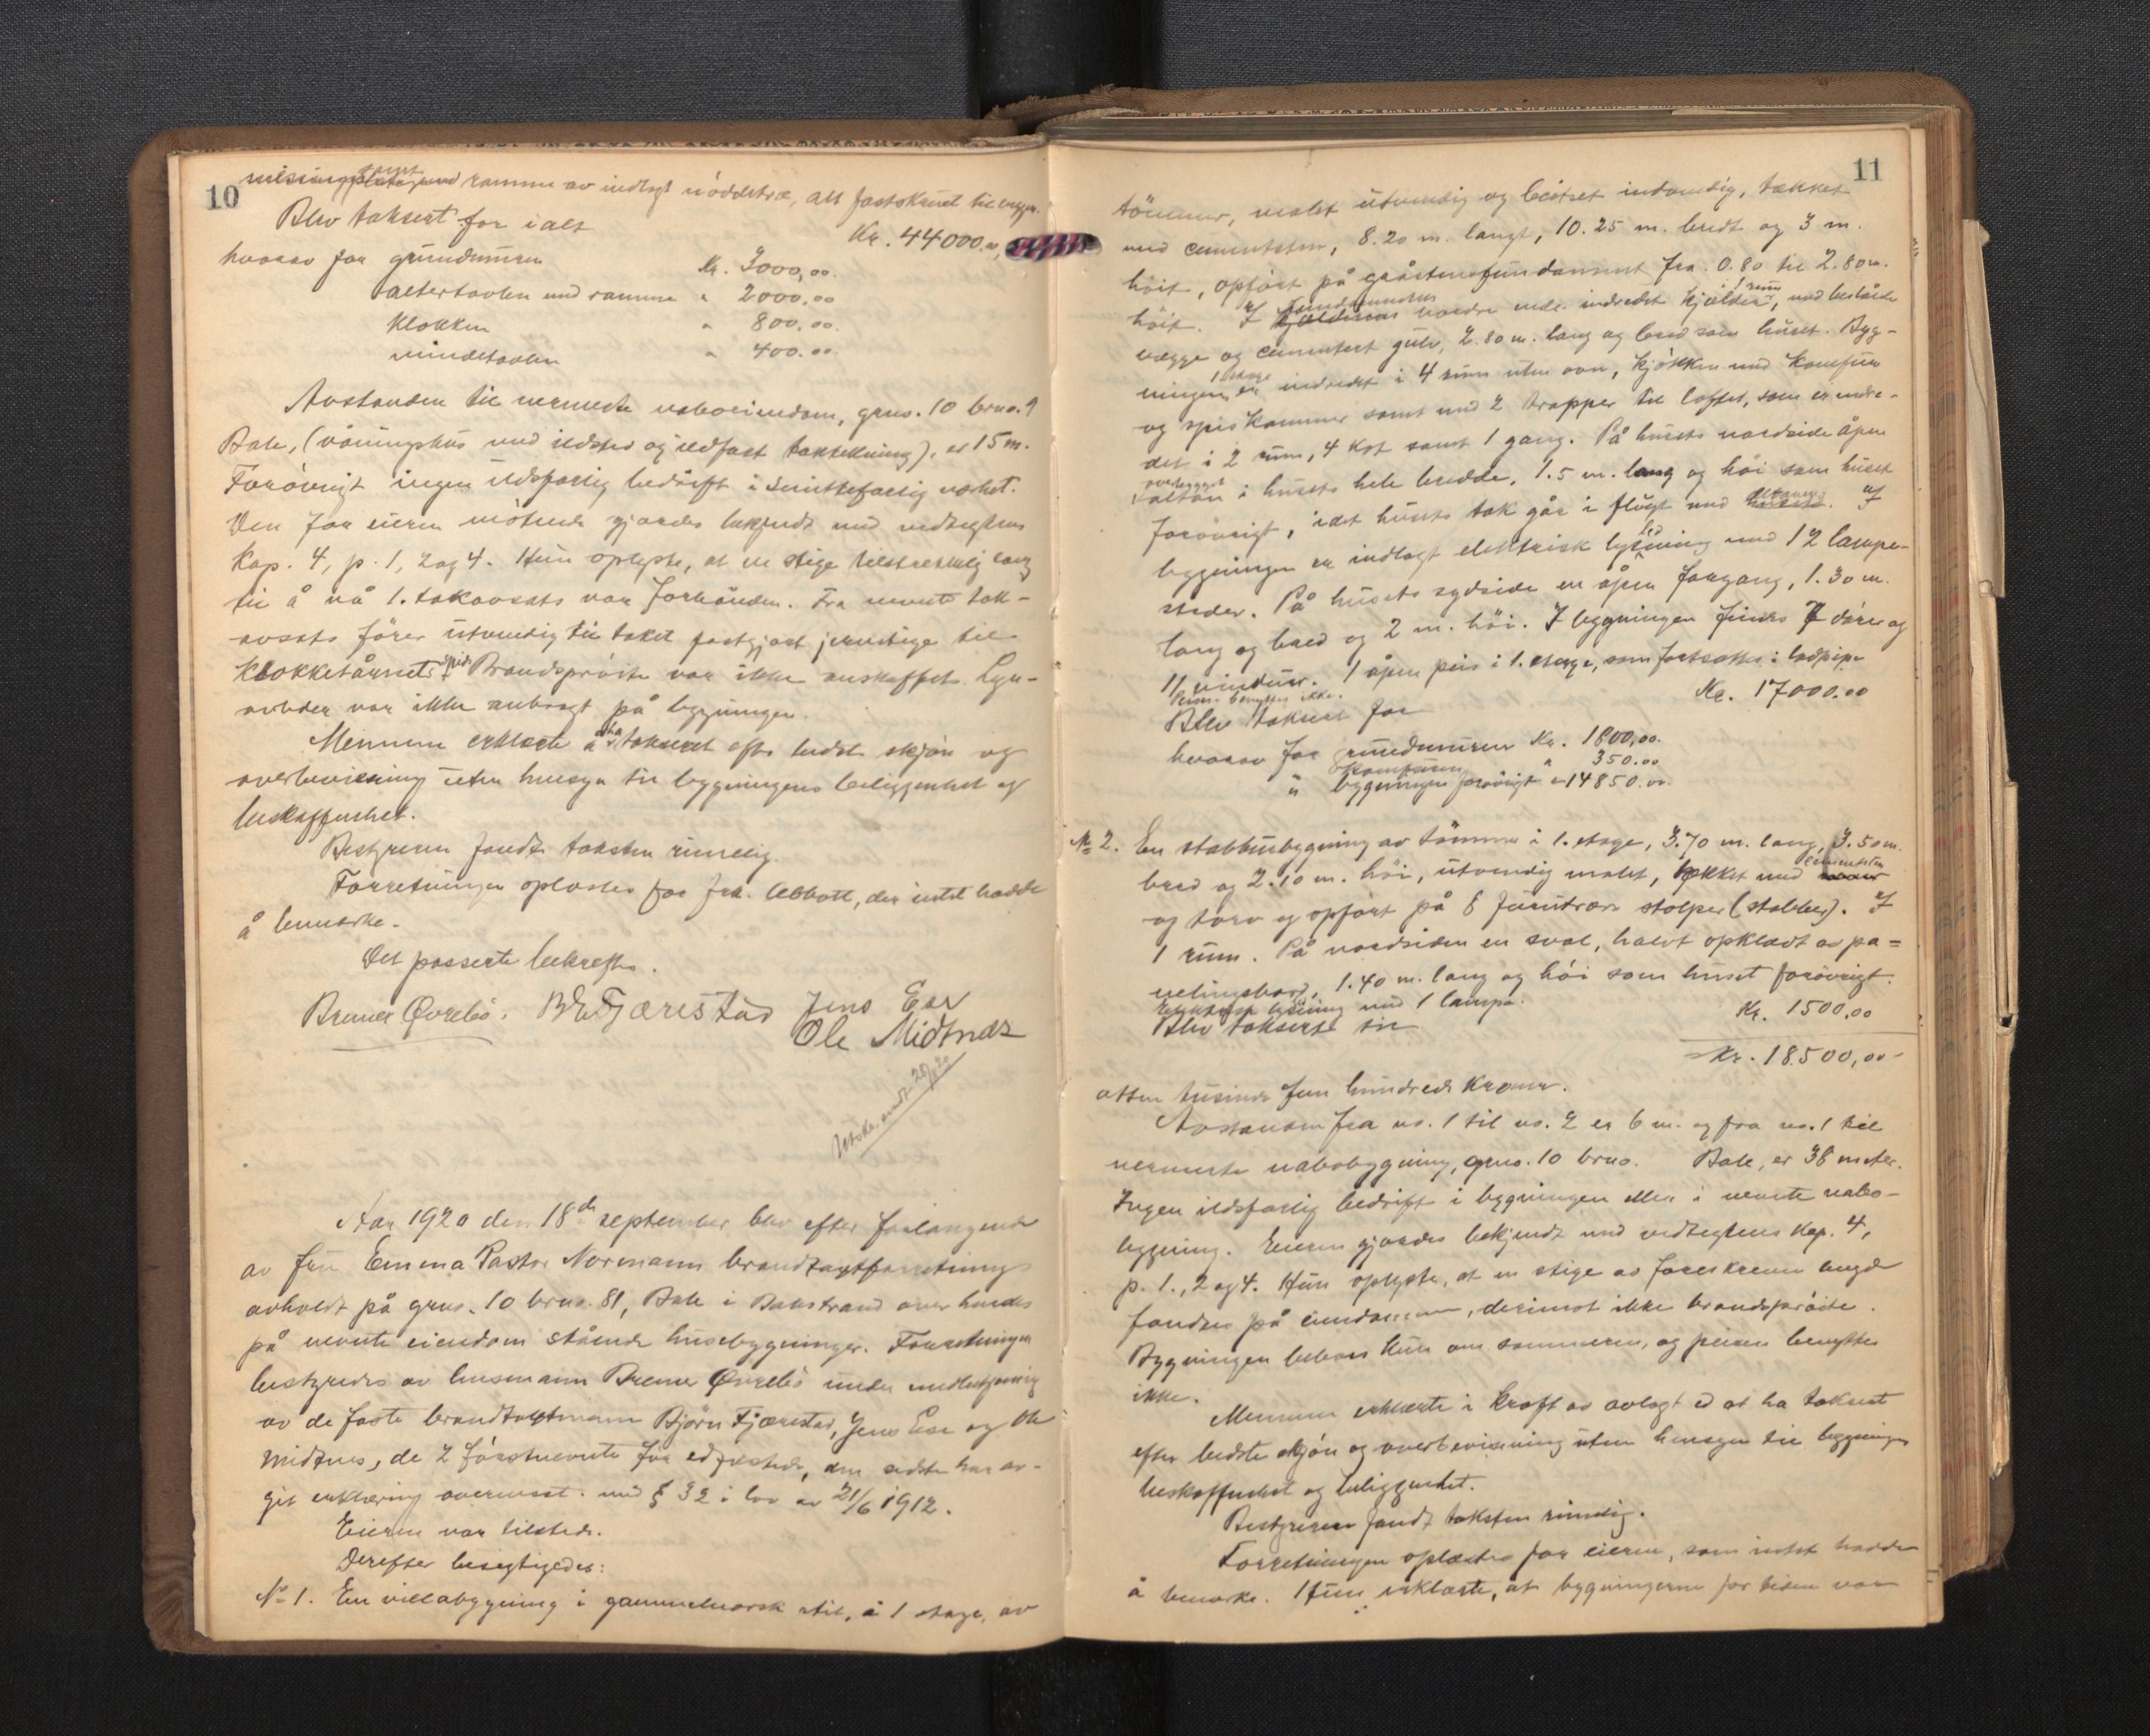 10
messingplate samt med ramme av indlagt nöddetræ, alt fastskruet til væggen.
Blev taksert for ialt Kr. 44000.00
hvorav for grundmuren Kr. 3000,00.
altertavlen med ramme " 2000,00
klokken " 800,00.
mindetavlen " 400.00
Avstanden til nærmeste naboeiendom, grno. 10 brno. 9
Bale, (våningshus med ildsted og ildfast taktekning), er 15 m.
Forövrigt ingen ildsfarlig bedrift i smittefarlig nærhet.
Den for eieren mötende gjordes bekjendt med vedtegtens
kap. 4, p. 1, 2 og 4. Hun oplyste, at en stige tilstrekkelig lang
til å nå 1. takavsats var forhånden. Fra nevnte tak-
avsats förer utvendig til taket fastgjort jernstige til
klokketårnets spir. Brandspröite var ikke anskaffet. Lyn-
avleder var ikke anbragt på bygningen.
Mennene erklærte å ha taksert efter bedste skjön og
overbevisning uten hensyn til bygningens beliggenhet og
beskaffenhet.
Bestyreren fandt taksten rimelig.
Forretningen oplæstes for frk. Abbott, der intet hadde
å bemerke.
Det passerte bekreftes.
Bremer Øvrebö. B E Fjærestad Jens Ese
Ole Midtnes
Utskr. sendt 20/9 20
Aar 1920 den 18de september blev efter forlangende
av fru Emma Pastor Normann brandtaxtforretning
avholdt på grno. 10 brno. 81, Bale i Balestrand over hendes
på nevnte eiendom stående husebygninger. Forretningen
bestyredes av lensmann Bremer Øvrebö under medbetjening
av de faste brandtaxtmænn Björn Fjærestad, Jens Ese og Ole
Midtnes, de 2 förstnevnte för edfæstede, den sidste har av-
git erklæring overensst. med § 32 i lov av 21/6 1912.
Eieren var tilstede.
Derefter besigtigedes:
No 1. En villabygning i gammelnorsk stil, i 1 etage, av
11
tömmer, malet utvendig og beitset indvendig, tækket
med cementsten, 8.20 m. langt, 10.25 m. bredt og 3 m.
höit, opfört på gråstensfundament fra 0.80 til 2.80 m.
höit. I grundmurens nordre ende indredet kjelder, 1 rum, med beslåtte
vægge og cementert gulv, 2.80 m. lang og bred som huset. Byg-
ningens 1 etage er indredet i 4 rum uten ovn, kjökken med komfur
og spiskammer samt med 2 trapper til loftet, som er indre-
det i 2 rum, 4 kot samt 1 gang. På husets nordside åpen
overbygget altan i husets hele bredde, 1.5 m. lang og höi som huset
forövrigt, idet husets tak går i flugt med altanens. I
bygningen er indlagt elektrisk lysledning med 12 lampe-
steder. På husets sydside en åpen forgang, 1.30 m.
lang og bred og 2 m. höi. I bygningen findes 7 dörer og
11 vinduer. 1 åpen peis i 1. etage, som fortsættes i lodpipe
Peisen benyttes ikke.
Blev taksert for Kr. 17000.00
hvorav for grundmuren Kr. 1800,00.
" komfuren " 350.00
" bygningen forövrigt " 14850.00.
No 2. En stabburbygning av tömmer i 1. etage, 3.70 m. lang, 3.50 m.
bred og 2.10 m. höi, utvendig malet, tækket med cementsten
og torv og opfört på 8 furutræes stolper (stabber). I
1 rum. På nordsiden en sval, halvt opklædt av pa=
nelingsbord, 1.40 m. lang og höi som huset forövrigt.
Elektrisk lysning med 1 lampe.
Blev taksert til Kr. 1500,00
Kr. 18500,00
atten tusinde fem hundrede kroner.
Avstanden fra no. 1 til no. 2 er 6 m. og fra no. 1 til
nermeste nabobygning, grno. 10 brno. Bale, er 38 meter.
Ingen ildsfarlig bedrift i bygningen eller i nevnte nabo-
bygning. Eieren gjordes bekjendt med vedtegtens kap. 4,
p. 1., 2 og 4. Hun oplyste, at en stige av foreskreven lengd
fandtes på eiendommen, derimot ikke brandspröite.
Bygningen beboes kun om sommeren, og peisen benyttes
ikke.
Mennene erklærte i kraft av avlagt ed at ha taksert
efter bedste skjön og overbevisning uten hensyn til bygningens
beskaffenhet og beliggenhet.
Bestyreren fandt taksten rimelig.
Forretningen oplæstes for eieren, som intet hadde
å bemerke. Hun erklærte, at bygningerne for tiden var